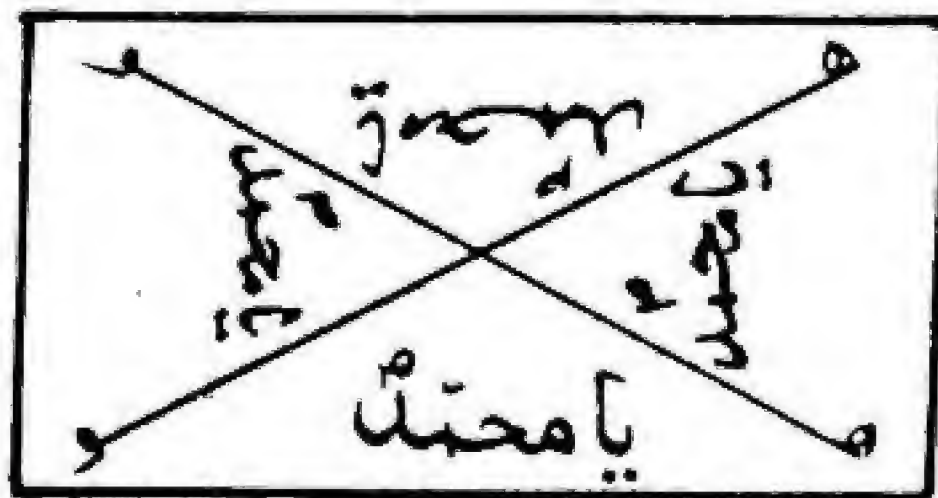 يا محمد
يا محمد
يا محمد
يا محمدٌ